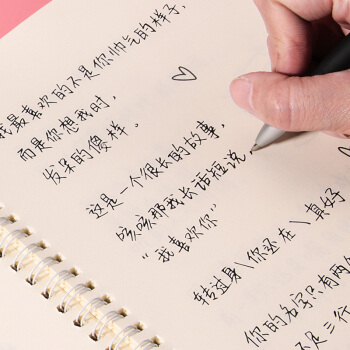 我最喜欢的不是你帅气的样子,
而是你想我时,
发呆的傻样。
这是一个很长的故事,
咳咳那我长话短说
“我喜欢你”
转过身\你还在\真好
你的名字只有两
不足三行